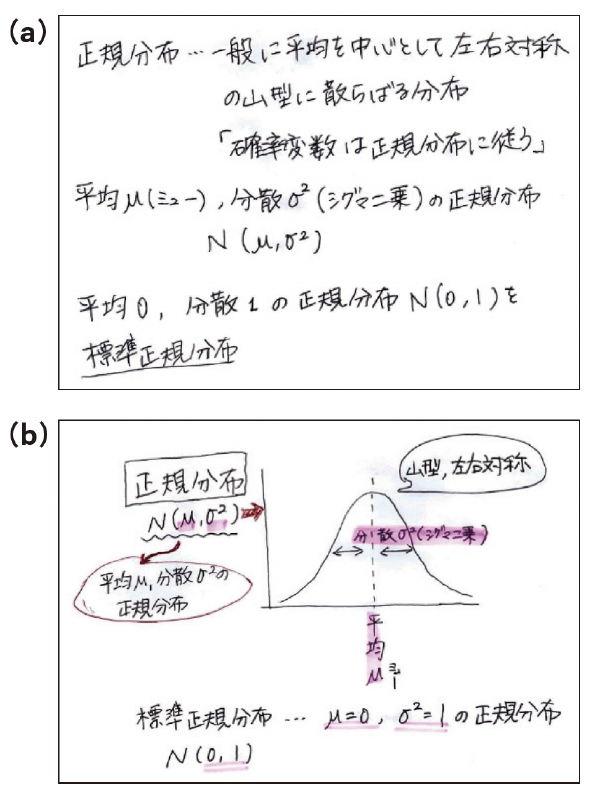 (a)
正規分布…一般に平均を中心として左右対称
の山型に散らばる分布
「確率変数は正規分布に従う」
平均μ(ミュー),分散σ²(シグマ二乗)の正規分布
N(μ,σ²)
平均0,分散1の正規分布N(0,1)を
標準正規分布
(b)
正規分布
N(μ,σ²)
平均μ,分散σ²の
正規分布
山型,左右対称
分散σ²(シグマ二乗)
平均μ ミュー
標準正規分布…μ=0,σ²=1の正規分布
N(0,1)